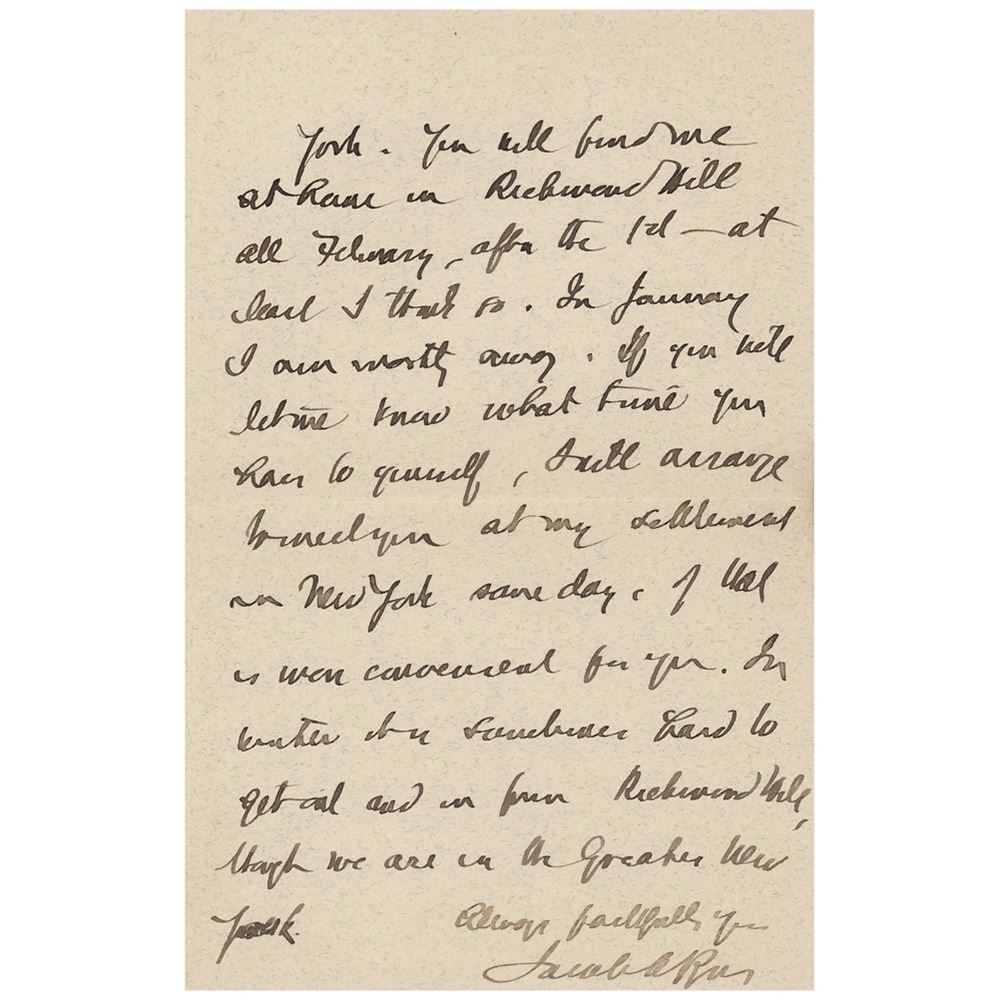 York. You will find me
at home in Richmond Hill
all February, after the 1st — at
least I think so. In January
I am mostly away. If you will
let me know what time you
have to yourself, I will arrange
to meet you at my settlement
in New York some day, if that
is more convenient for you. In
winter it is sometimes hard to
get out and in from Richmond Hill,
though we are in the Greater New
York.
Always faithfully yours
Jacob A Riis